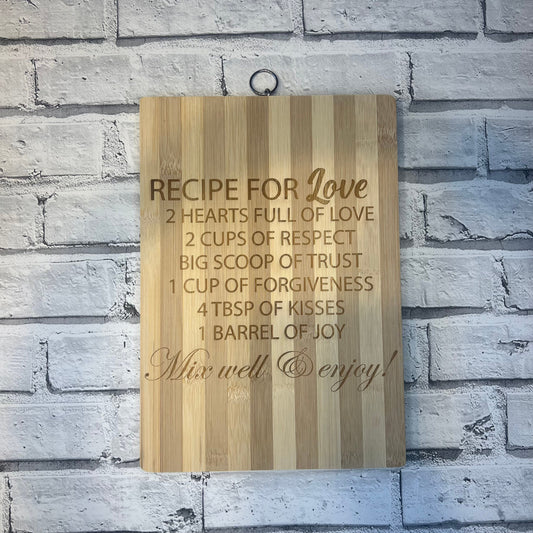 RECIPE FOR Love
2 HEARTS FULL OF LOVE
2 CUPS OF RESPECT
BIG SCOOP OF TRUST
1 CUP OF FORGIVENESS
4 TBSP OF KISSES
1 BARREL OF JOY
Mix well & enjoy!